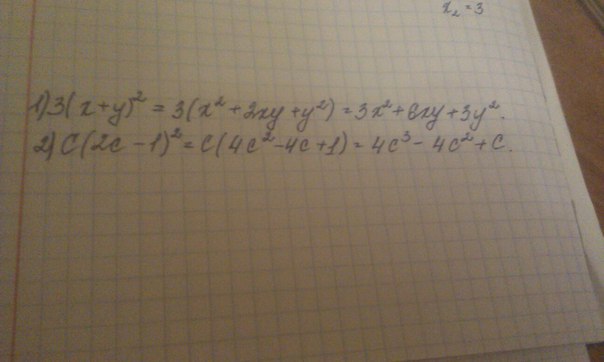 x₂ = 3
1) 3(x+y)² = 3(x²+2xy+y²) = 3x²+6xy+3y².
2) C(2c-1)² = C(4c²-4c+1) = 4c³-4c²+C.